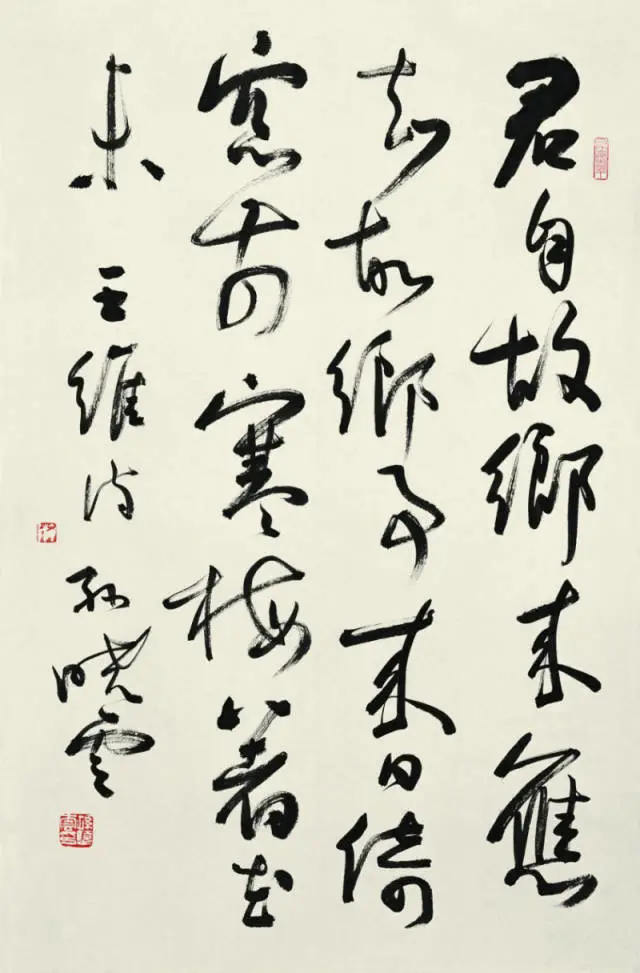 君自故鄉来應
知故鄉事来日倚
窓前寒梅著花
未 王維詩 孫曉雲